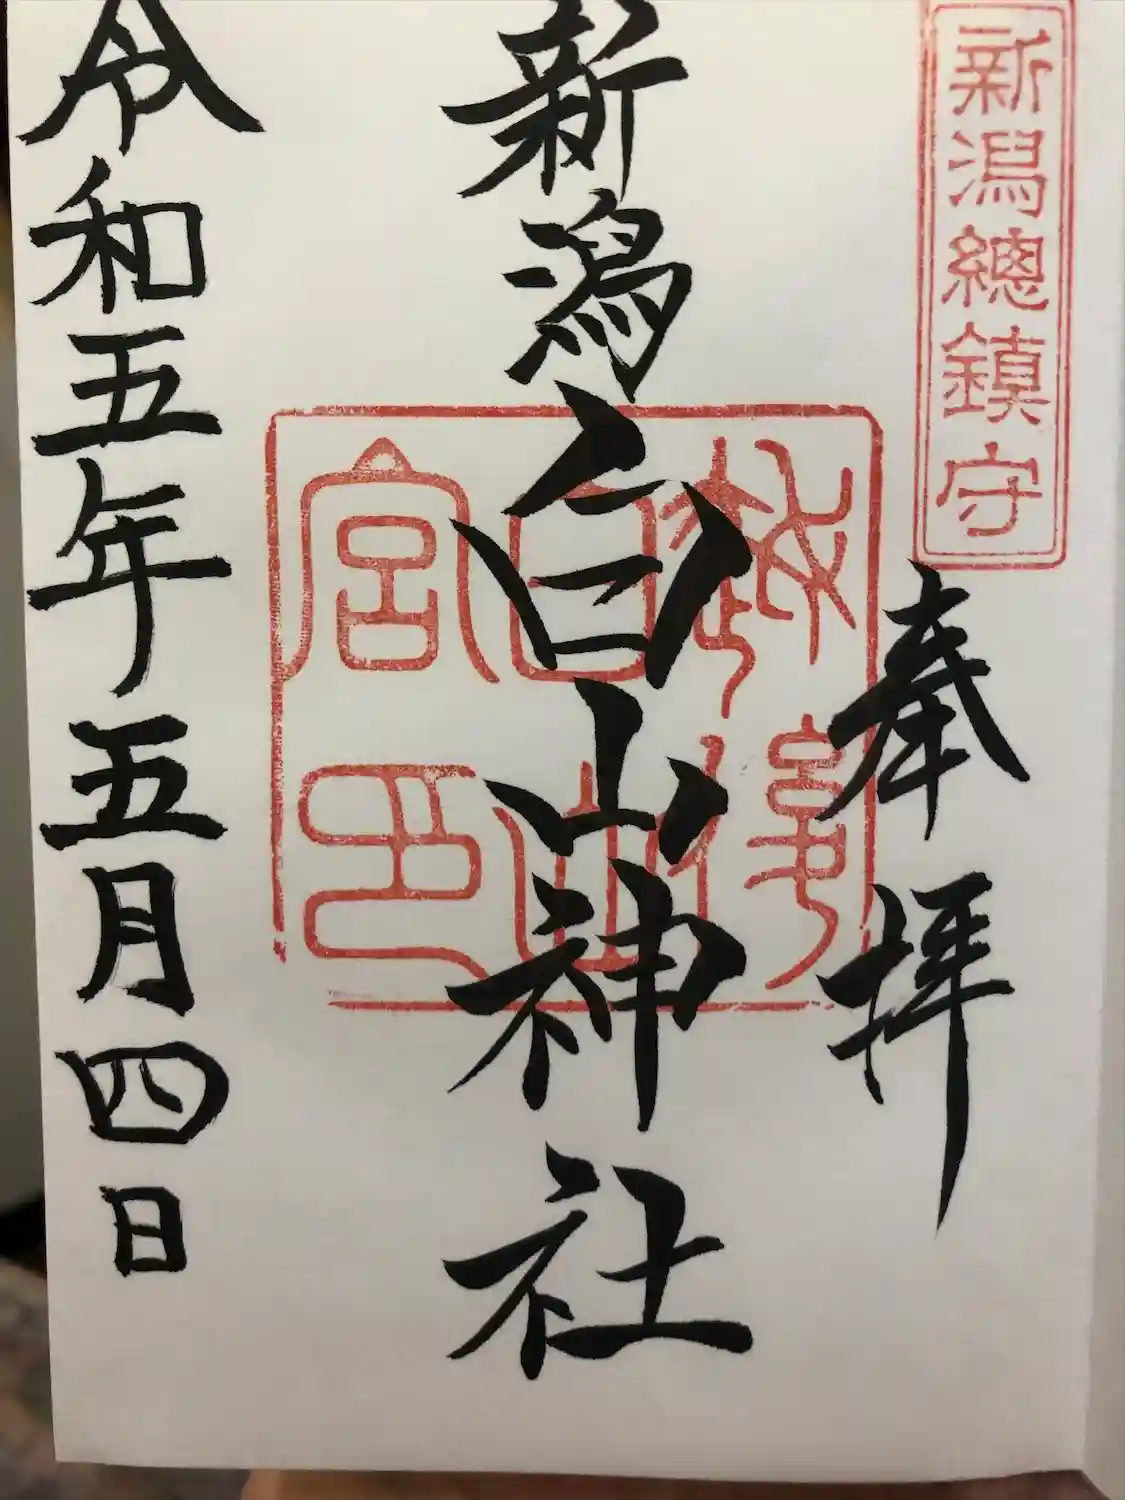 新潟總鎮守
奉拝
新潟白山神社
令和五年五月四日
白山
宮印